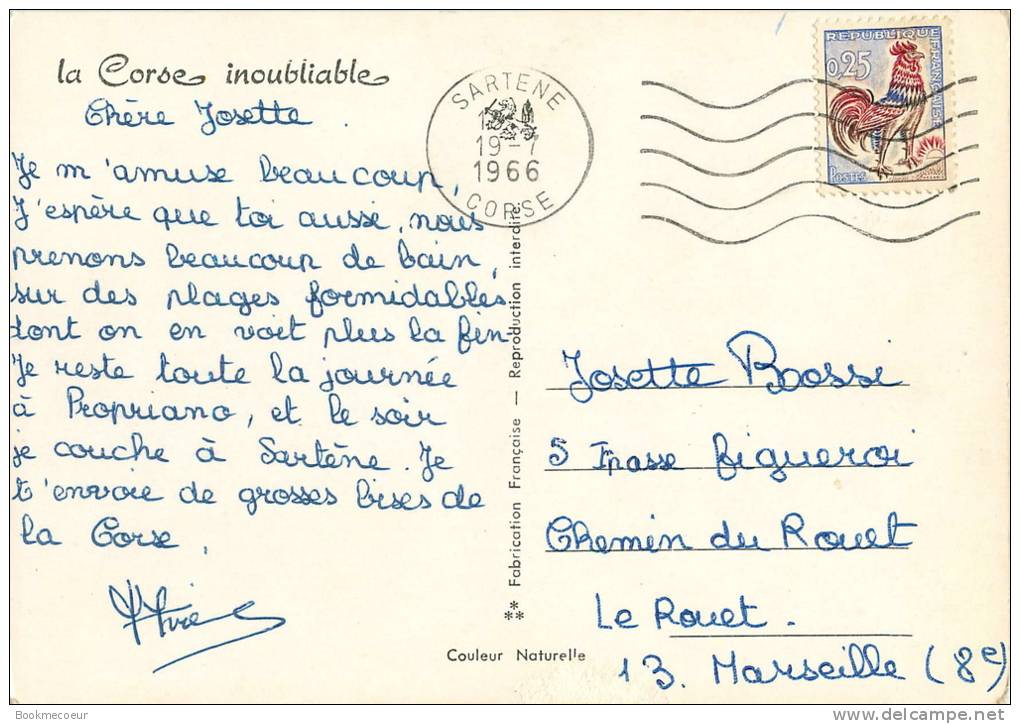 la Corse inoubliable
Chère Josette.
Je m'amuse beaucoup,
J'espère que toi aussi, nous
prenons beaucoup de bain,
sur des plages formidables
dont on en voit plus la fin
Je reste toute la journée
à Propriano, et le soir
je couche à Sartène. Je
t'envoie de grosses bises de
la Corse,
SARTENE
19-7
1966
CORSE
REPUBLIQUE FRANÇAISE
0,25
POSTES
** Fabrication Française — Reproduction interdite
Couleur Naturelle
Josette Bossi
5 Inpasse figueroi
Chemin du Rouet
Le Rouet.
13. Marseille (8e)
Bookmecoeur